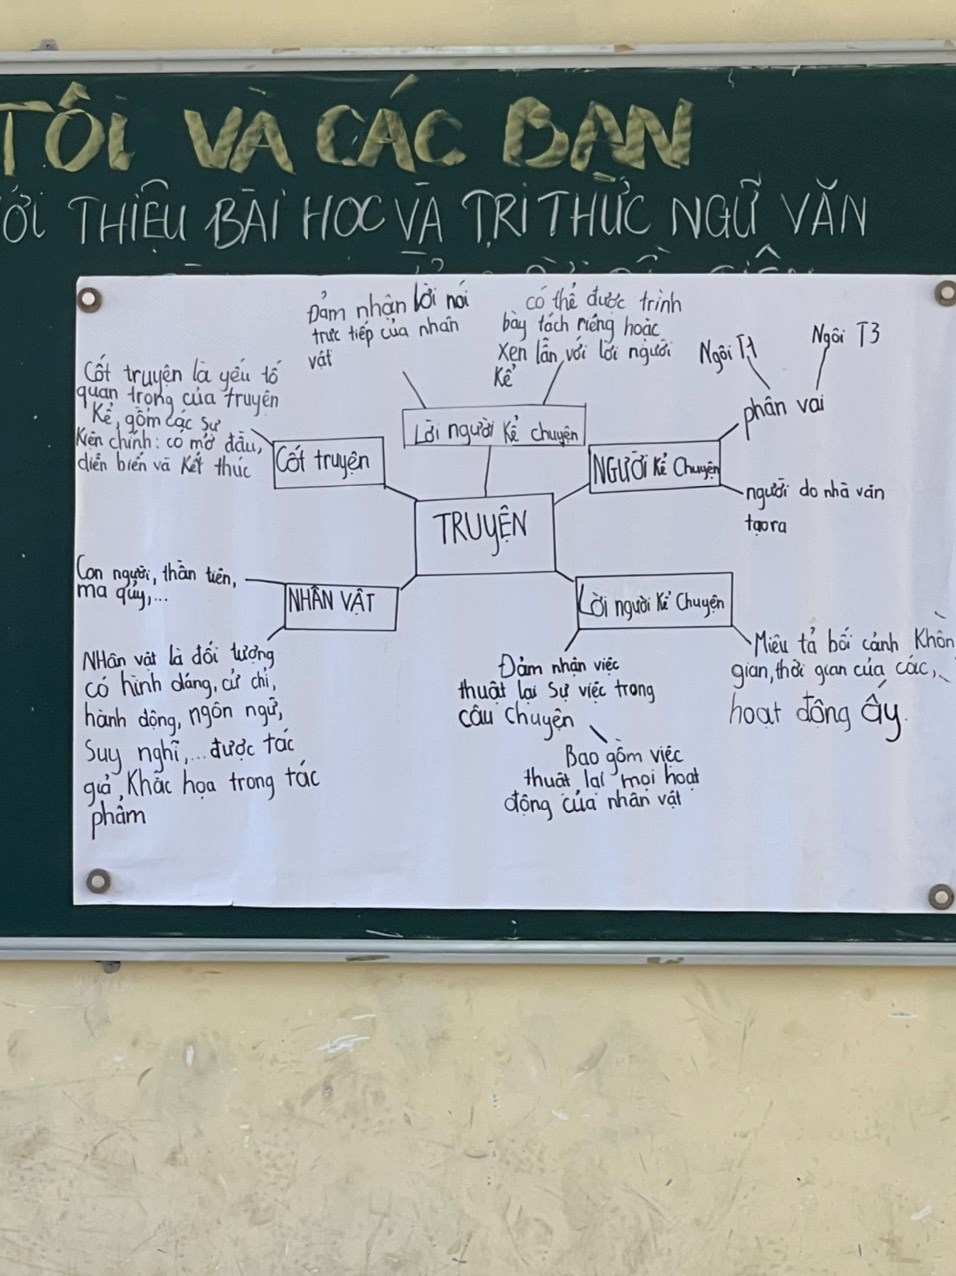 TÔI VÀ CÁC BẠN
THIỆU BÀI HỌC VÀ TRI THỨC NGỮ VĂN
Đảm nhận lời nói
trực tiếp của nhân
vật
có thể được trình
bày tách riêng hoặc
xen lẫn với lời người
kể
Ngôi T1
Ngôi T3
phân vai
người do nhà văn
tạo ra
Cốt truyện là yếu tố
quan trọng của truyện
kể, gồm các sự
kiện chính: có mở đầu,
diễn biến và kết thúc
Cốt truyện
Lời người kể chuyện
NGƯỜI kể chuyện
TRUYỆN
Con người, thần tiên,
ma quỷ,...
NHÂN VẬT
Lời người kể chuyện
Nhân vật là đối tượng
có hình dáng, cử chỉ,
hành động, ngôn ngữ,
suy nghĩ,... được tác
giả khắc họa trong tác
phẩm
Đảm nhận việc
thuật lại sự việc trong
câu chuyện
Bao gồm việc
thuật lại mọi hoạt
động của nhân vật
Miêu tả bối cảnh Khôn
gian, thời gian của các,
hoạt động ấy.